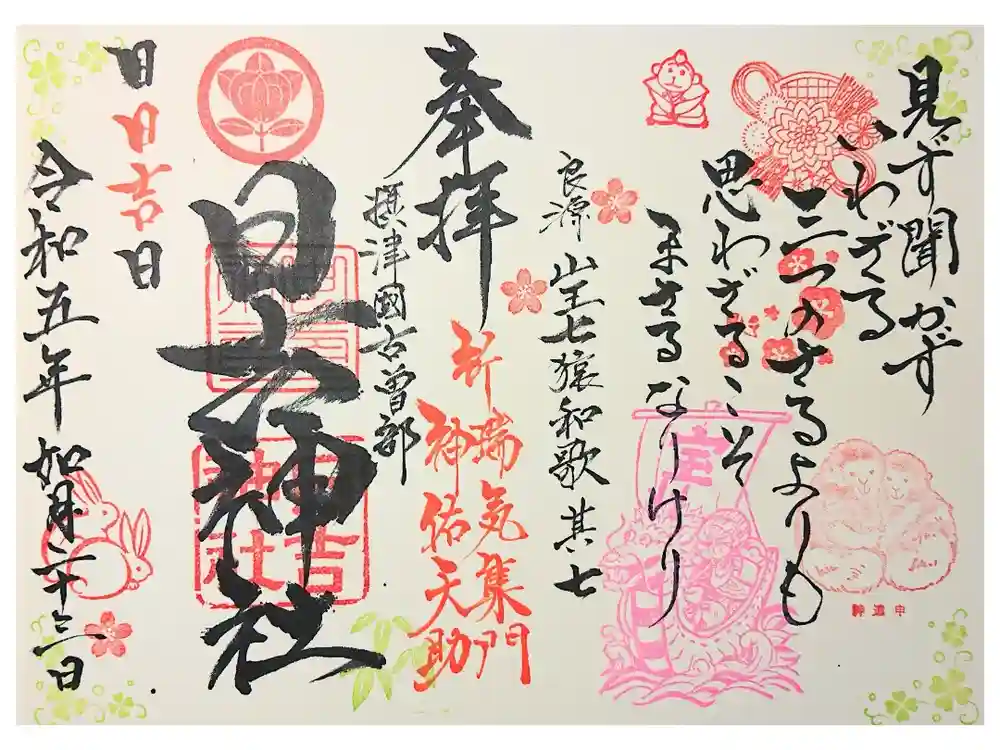 見ず聞かず
いわざる
三つのさるよりも
思わざるこそ
まさるなりけり
良源 山王七猿和歌 其七
奉拝
祈 瑞気集門
神佑天助
摂津國古曽部
日吉神社
日日吉日
令和五年如月二十三日
宝